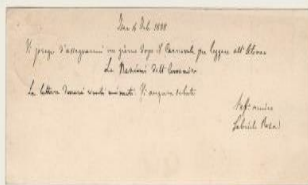 Iseo 6 Feb. 1888
Vi prego d'assegnarmi un giorno dopo il Carnevale per leggere all'Ateneo
Le Nazioni dell'
La lettura venti minuti. Vi auguro salute
Vostro amico
Gabriele Rosa